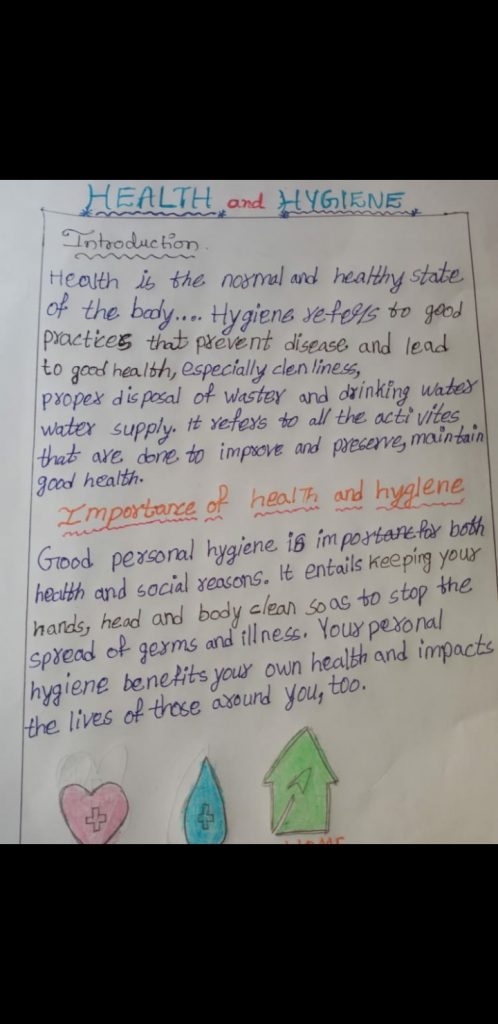 HEALTH and HYGIENE
Introduction.
Health is the normal and healthy state
of the body.... Hygiene refers to good
practices that prevent disease and lead
to good health, especially clenliness,
proper disposal of waster and drinking water
water supply. It refers to all the activites
that are done to improve and preserve, maintain
good health.
Importance of health and hygiene
Good personal hygiene is important for both
health and social reasons. It entails keeping your
hands, head and body clean so as to stop the
spread of germs and illness. Your peronal
hygiene benefits your own health and impacts
the lives of those around you, too.
HOME